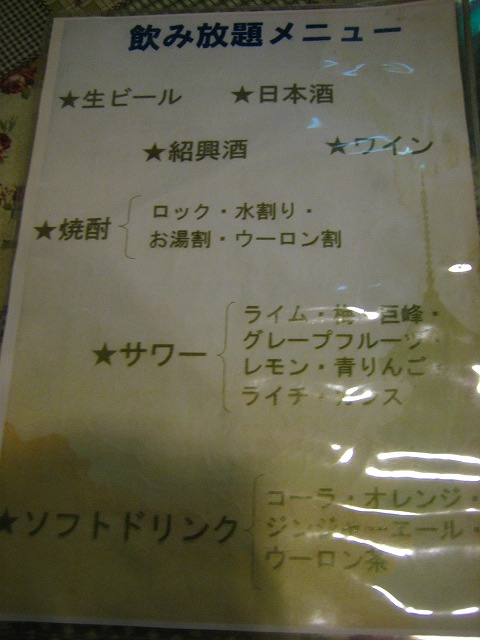 飲み放題メニュー
★生ビール ★日本酒
★紹興酒 ★ワイン
★焼酎
ロック・水割り・
お湯割・ウーロン割
★サワー
ライム・梅・巨峰・
グレープフルーツ・
レモン・青りんご・
ライチ・カシス
★ソフトドリンク
コーラ・オレンジ・
ジンジャーエール・
ウーロン茶